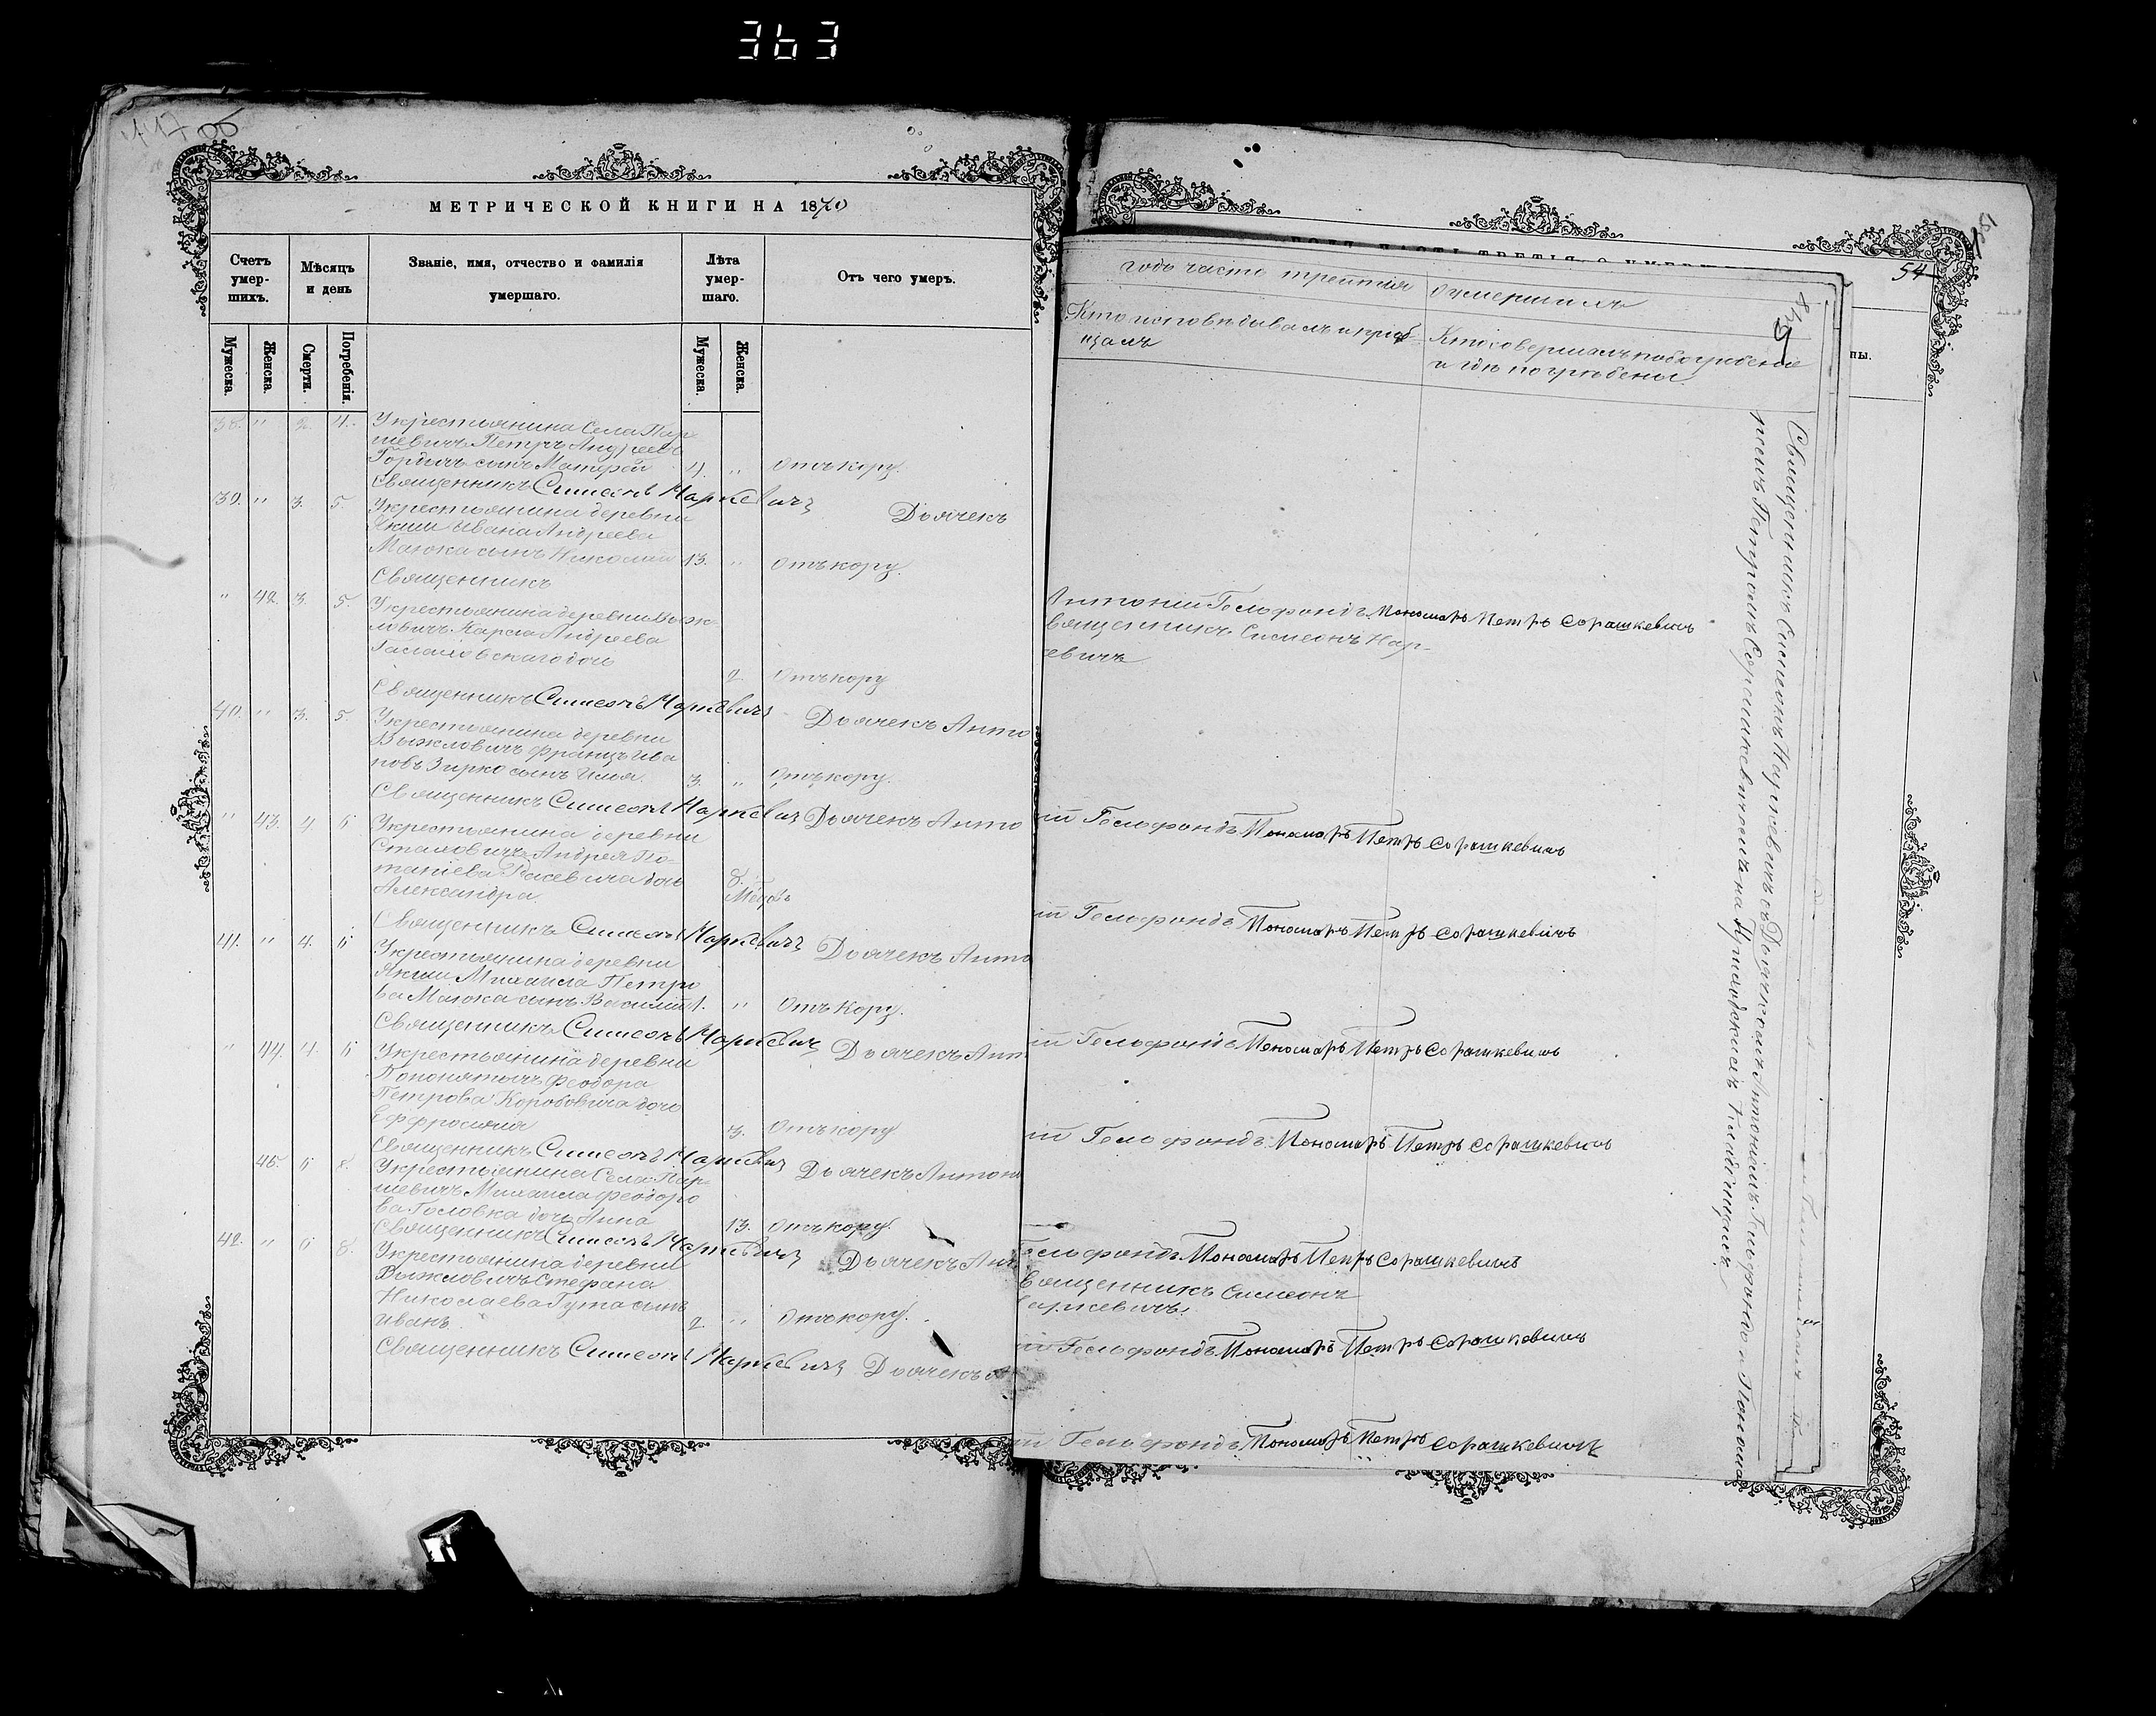 363
417 об
МЕТРИЧЕСКОЙ КНИГИ НА 1870
Счетъ умер- шихъ.
Мѣсяцъ и день
Званіе, имя, отчество и фамилія умершаго.
Лѣта умер- шаго.
Отъ чего умеръ.
Мужеска.
Женска.
Смерти.
Погребенія.
Мужеска.
Женска.
38. " 2. 4. Укрестьянина Села Пар-
шевичъ Петръ Андреевъ
сынъ Матфей 4. " Отъ кору.
Священникъ Симеонъ Наркевичъ
Дьячекъ
39. " 3. 5. Укрестьянина деревни
Якши Ивана Андреева
Мазюка сынъ Николай 13. " Отъ кору.
Священникъ
" 42. 3. 5. Укрестьянина деревни Выж-
ловичъ Карпа Андреева
дочь
2. Отъ кору
Священникъ Симеонъ Наркевичъ Дьячекъ Анто
40. " 3. 5. Укрестьянина деревни
Выжловичъ Францъ Ива
новъ Зирко сынъ Илья. 3. " Отъ кору.
Священникъ Симеонъ Наркевичъ Дьячекъ Анто
" 43. 4 6 Укрестьянина деревни
Андрея По-
тапіева дочь 8.
Александра.
Священникъ Симеонъ Наркевичъ Дьячекъ Анто
41. " 4. 6 Укрестьянина деревни
Якши Михаила Петро
ва Мазюка сынъ Василій 1. " Отъ Кору.
Священникъ Симеонъ Наркевичъ Дьячекъ Ант
" 44. 4. 6 Укрестьянина деревни
Феодора
Петрова Коробовича дочь
Еффросинія 3. Отъ кору
Священникъ Симеонъ Наркевичъ Дьячекъ Антон
45. 6 8. Укрестьянина Села Пар-
шевичъ Михаила Феодоро
ва Головка дочь Анна 13. Отъ кору.
Священникъ Симеонъ Наркевичъ Дьячекъ Ант
42. " 6 8. Укрестьянина деревни
Выжловичъ Стефана
Николаева Гута сынъ
Иванъ. 2. " Отъ кору.
Священникъ Симеонъ Наркевичъ Дьячекъ А
54
ны.
годъ часть треттія о умершихъ
Кто исповѣдывалъ и пріоб-
щалъ
Кто совершалъ погребеніе
и гдѣ погребены.
Антоній Гельфондъ Пономаръ Петръ Сорашкевичъ
вященникъ Симеонъ Нар-
кевичъ
ій Гельфондъ Пономаръ Петръ Сорашкевичъ
ій Гельфондъ Пономаръ Петръ Сорашкевичъ
ій Гельфондъ Пономаръ Петръ Сорашкевичъ
ій Гельфондъ Пономаръ Петръ Сорашкевичъ
Гельфондъ Пономаръ Петръ Сорашкевичъ
вященникъ Симеонъ
Наркевичъ.
ій Гельфондъ Пономаръ Петръ Сорашкевичъ
ій Гельфондъ Пономаръ Петръ Сорашкевичъ
Священникъ Симеонъ Наркевичъ съ Дьячкомъ Антоніемъ Гельфондомъ и Понома-
ремъ Петромъ Сорашкевичемъ на Приходскомъ Кладбищѣ